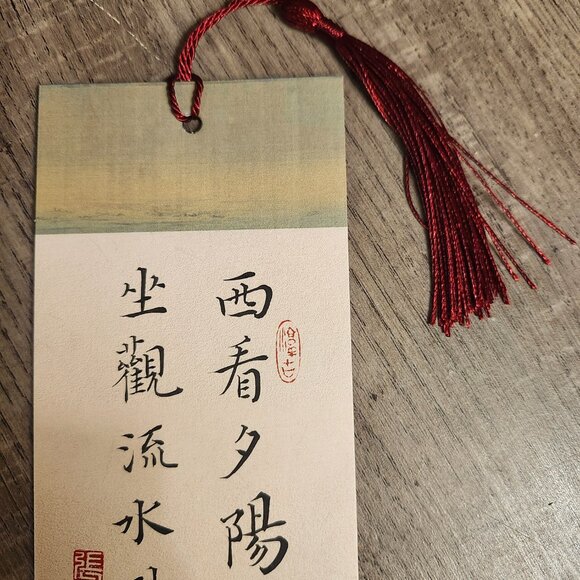 西看夕陽
坐觀流水